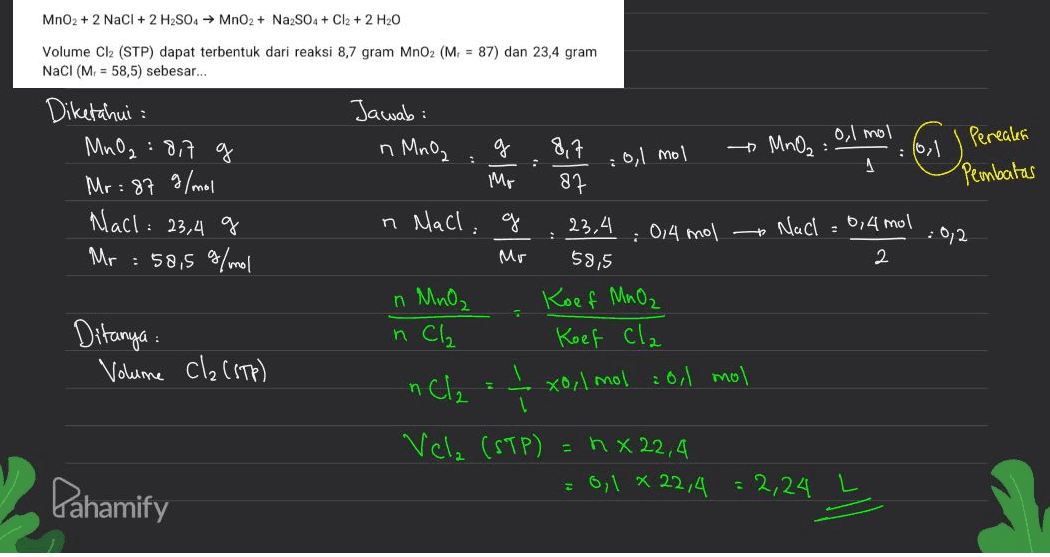 MnO₂ + 2 NaCl + 2 H₂SO₄ → MnO₂ + Na₂SO₄ + Cl₂ + 2 H₂O
Volume Cl₂ (STP) dapat terbentuk dari reaksi 8,7 gram MnO₂ (Mᵣ = 87) dan 23,4 gram
NaCl (Mᵣ = 58,5) sebesar...
Diketahui :
MnO₂ : 8,7 g
Mr : 87 g/mol
NaCl : 23,4 g
Mr : 58,5 g/mol
Ditanya :
Volume Cl₂ (STP)
Jawab :
n MnO₂ : g/Mr : 8,7/87 : 0,1 mol → MnO₂ : 0,1 mol/1 : 0,1
Pereaksi
Pembatas
n NaCl : g/Mr : 23,4/58,5 : 0,4 mol → NaCl = 0,4 mol/2 : 0,2
n MnO₂/n Cl₂ = Koef MnO₂/Koef Cl₂
n Cl₂ = 1/1 x 0,1 mol = 0,1 mol
VCl₂ (STP) = n x 22,4
= 0,1 x 22,4 = 2,24 L
Pahamify